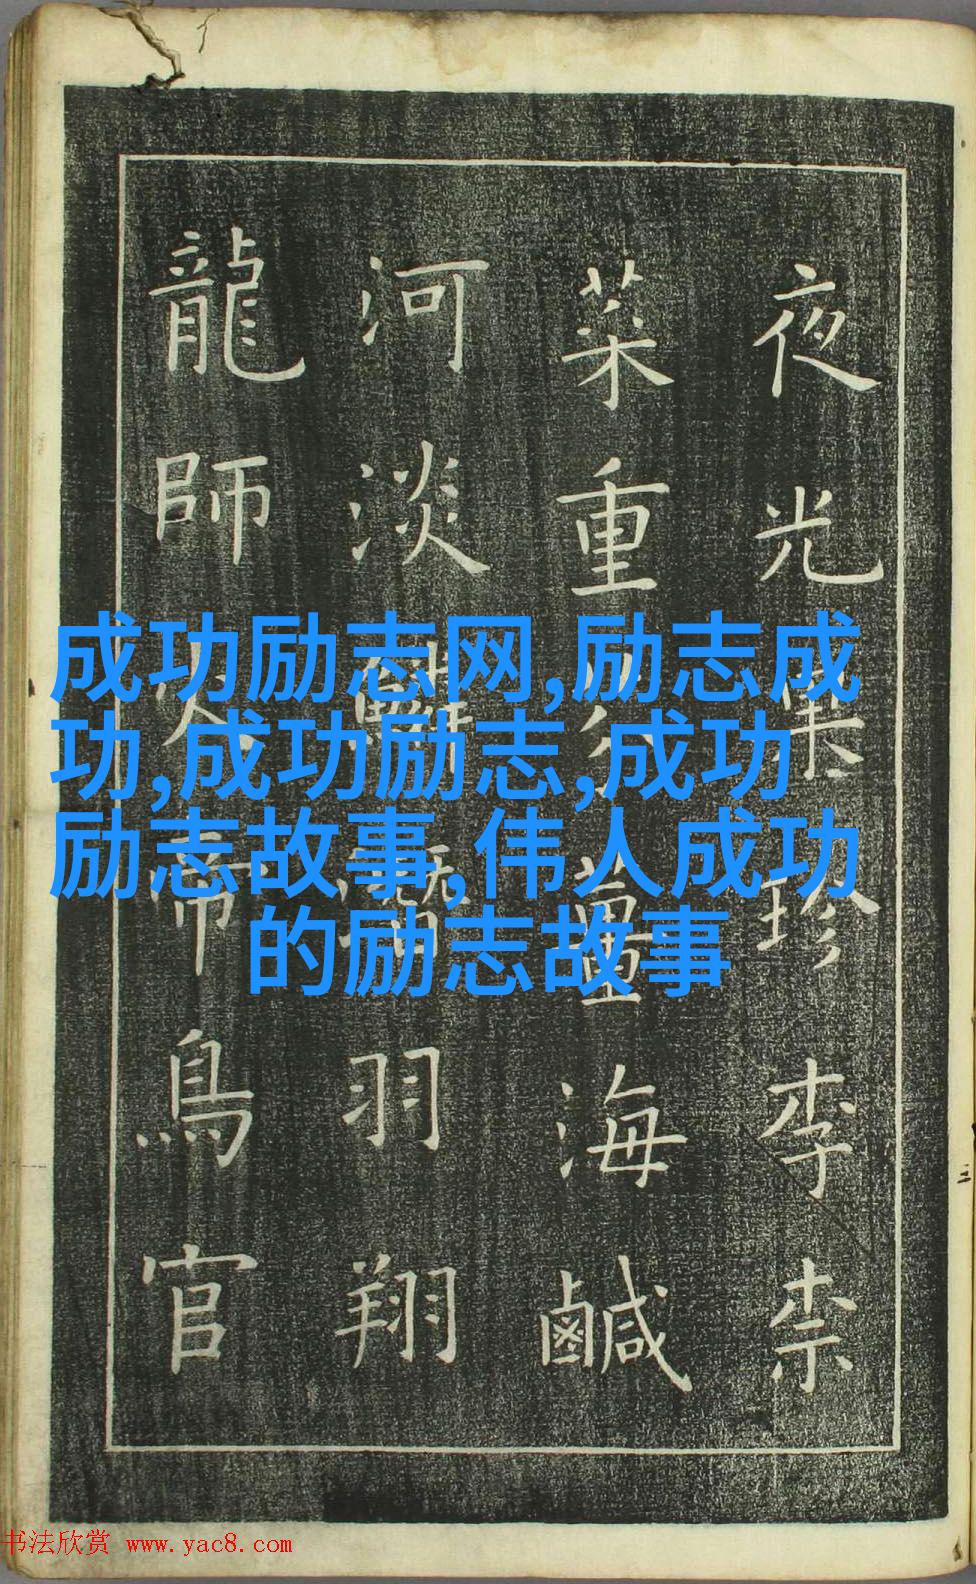 夜光果珍李柰
菜重芥薑海鹹
河淡鱗潛羽翔
龍師火帝鳥官
成功励志网,励志成
功,成功励志,成功
励志故事,伟人成功
的励志故事
书法欣赏 www.yac8.com